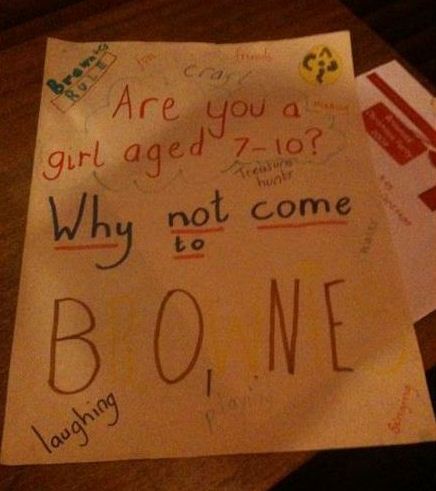 Brownies
RULE
fun
friends
craft
Are you a
girl aged 7-10?
Treasure
hunts
Why not come
to
BROWNIES
laughing
playing
singing